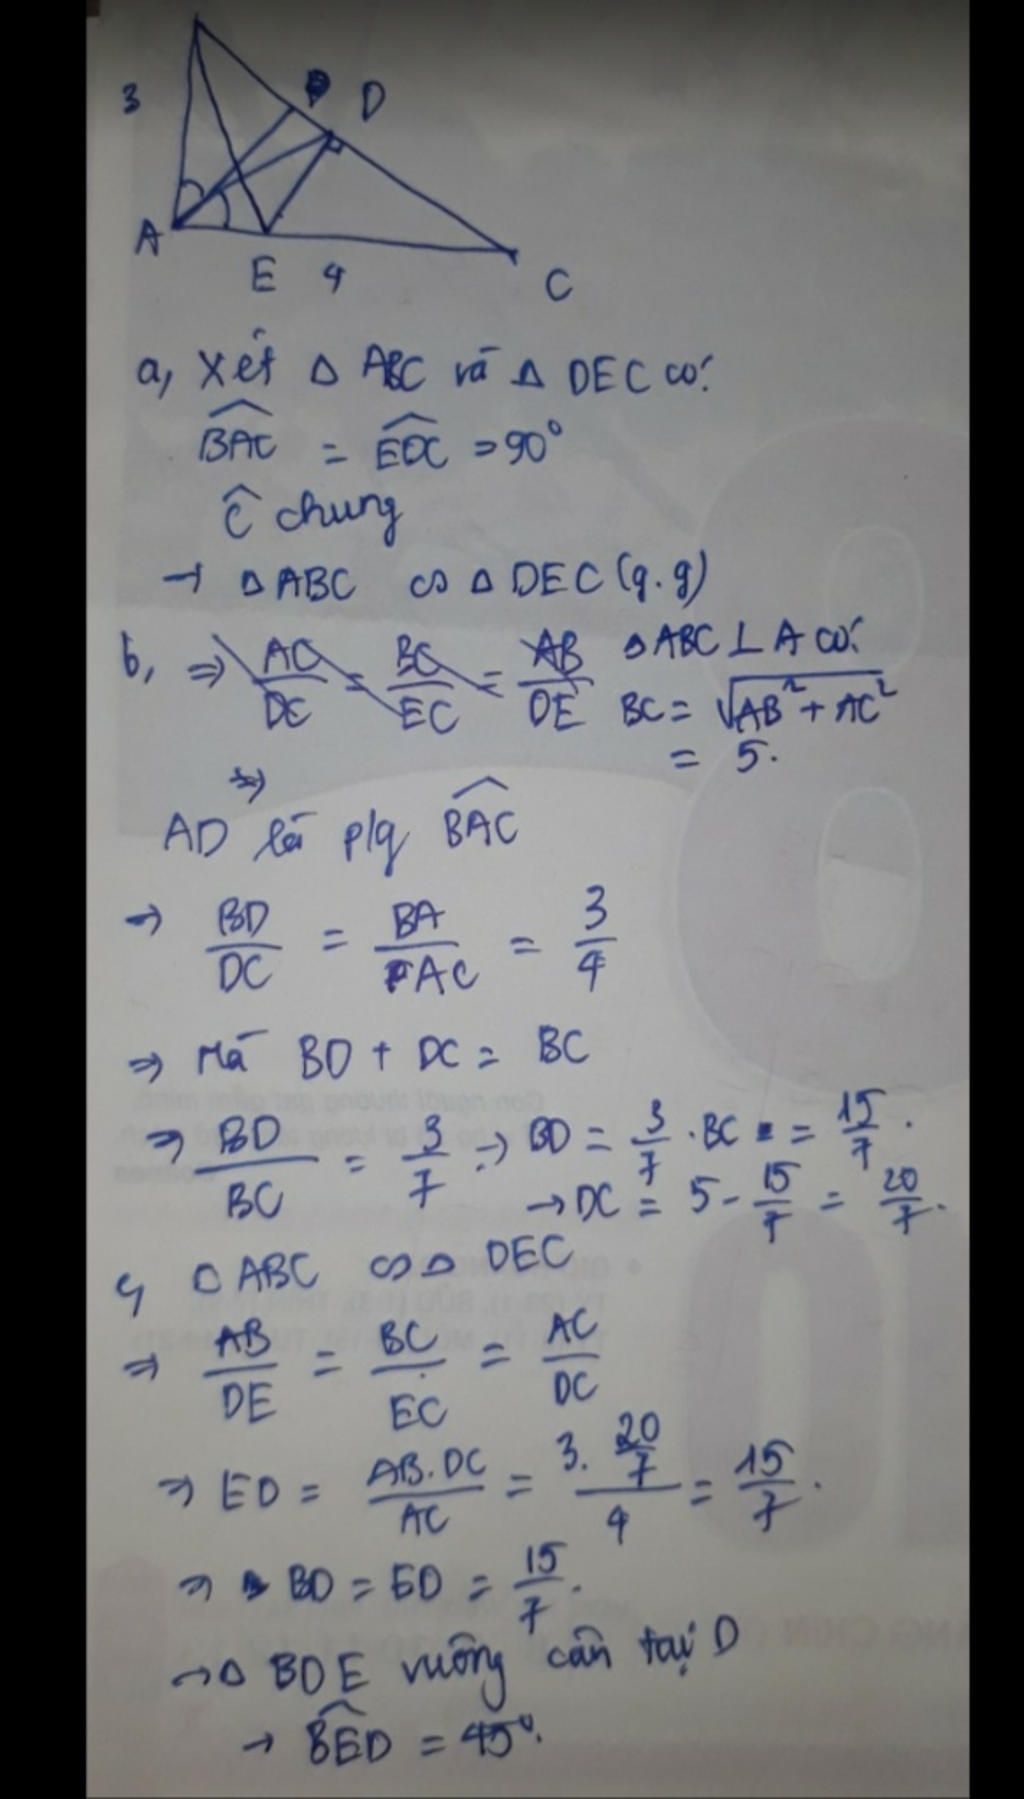 3
D
A
E 4
C
a, Xét Δ ABC và Δ DEC có:
\widehat{BAC} = \widehat{EDC} = 90°
Ĉ chung
→ Δ ABC ∽ Δ DEC (g.g)
b, ⇒ AC/DC = BC/EC = AB/DE
Δ ABC ⊥ A có:
BC = √(AB² + AC²)
= 5.
⇒
AD là p/g \widehat{BAC}
→ BD/DC = BA/AC = 3/4
⇒ Mà BD + DC = BC
⇒ BD/BC = 3/7 → BD = 3/7 . BC = 15/7 .
→ DC = 5 - 15/7 = 20/7 .
c, Δ ABC ∽ Δ DEC
⇒ AB/DE = BC/EC = AC/DC
⇒ ED = AB.DC/AC = 3. 20/7 / 4 = 15/7 .
⇒ BD = ED = 15/7 .
→ Δ BDE vuông cân tại D
→ \widehat{BED} = 45°.